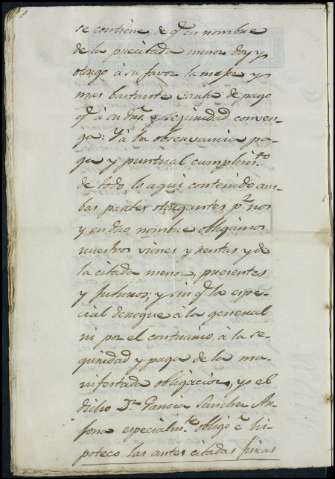 se contiene, de q.e en nombre
de la precitada menor doy y
otorgo á su favor la mejor y
mas bastante Carta de pago
q.e á su dro. y seguridad conven-
ga: Y á la observancia pa-
ga y puntual cumplim.to
de todo lo aquí contenido am-
bas partes otorgantes p.r nos
y en dho nombre obligamos
nuestros vienes y rentas y de
la citada menor, presentes
y futuros, y sin q.e la espe-
cial derogue á la general
ni por el contrario, á la se-
guridad y paga de la ma-
nifestada obligacion, yo el
dicho D.n Sanchez An-
especialm.te obligo é hi-
poteco las antes citadas fincas